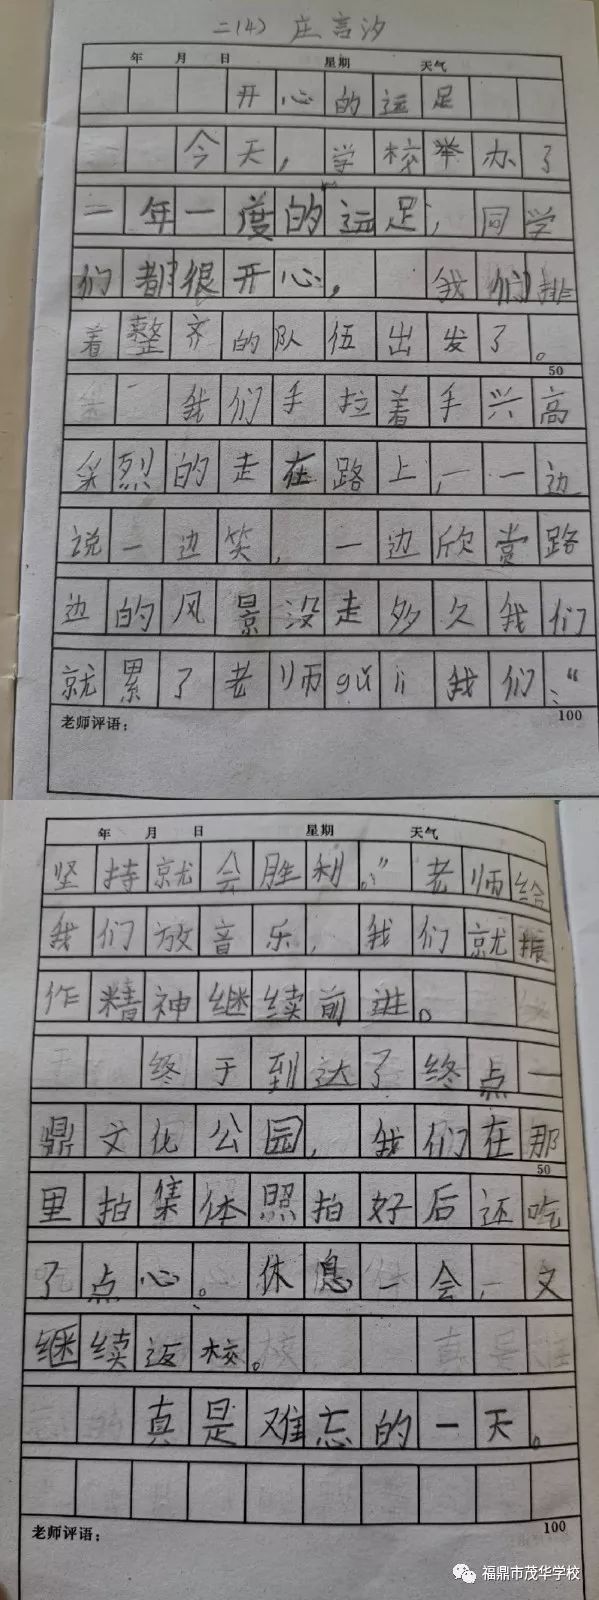 二(4) 庄言汐
年 月 日 星期 天气
开心的远足
今天，学校举办了
一年一度的远足，同学
们都很开心，我们排
着整齐的队伍出发了。
50
我们手拉着手兴高
采烈的走在路上，一边
说一边笑，一边欣赏路
边的风景没走多久我们
就累了老师gǔ lì我们：“
老师评语： 100
年 月 日 星期 天气
坚持就会胜利。”老师给
我们放音乐，我们就振
作精神继续前进。
终于到达了终点一
鼎文化公园，我们在那
50
里拍集体照拍好后还吃
了点心。休息一会，文
继续返校。
真是难忘的一天。
老师评语： 100
福鼎市茂华学校